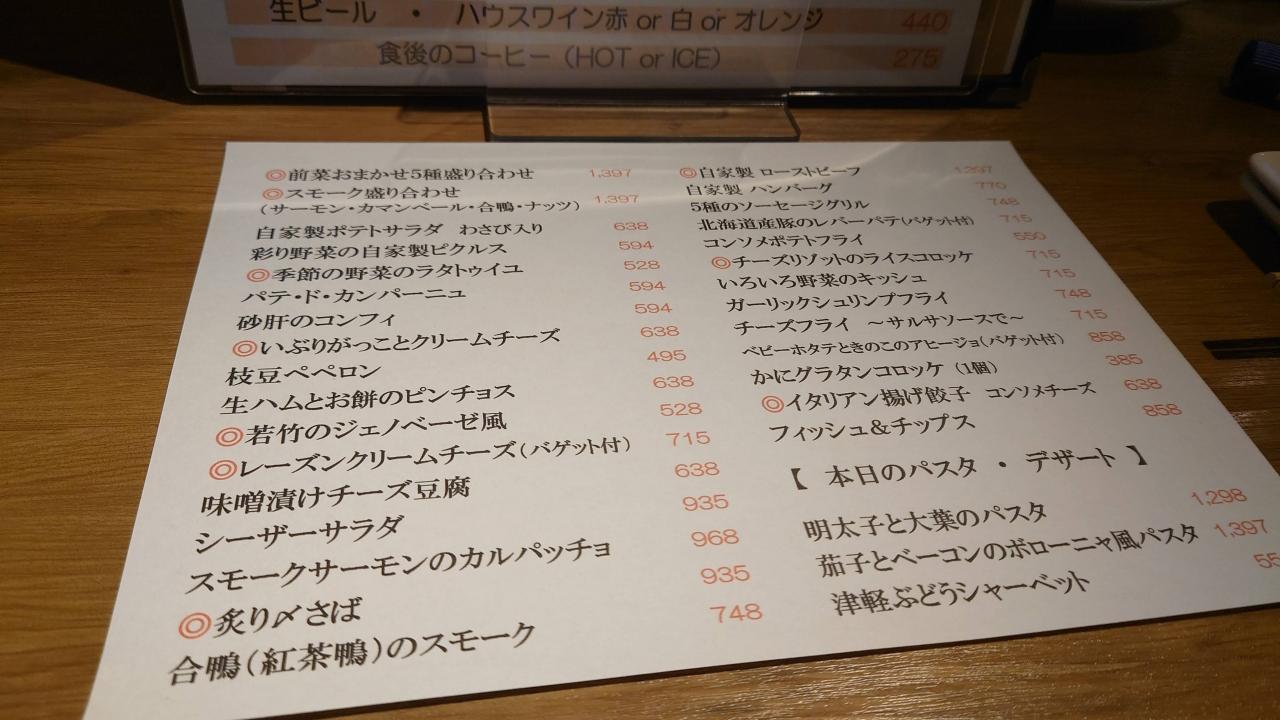 生ビール ・ ハウスワイン赤 or 白 or オレンジ 440
食後のコーヒー（HOT or ICE） 275
◎前菜おまかせ5種盛り合わせ 1,397
◎スモーク盛り合わせ
（サーモン・カマンベール・合鴨・ナッツ） 1,397
自家製ポテトサラダ わさび入り 638
彩り野菜の自家製ピクルス 594
◎季節の野菜のラタトゥイユ 528
パテ・ド・カンパーニュ 594
砂肝のコンフィ 594
◎いぶりがっことクリームチーズ 638
枝豆ペペロン 495
生ハムとお餅のピンチョス 638
◎若竹のジェノベーゼ風 528
◎レーズンクリームチーズ（バゲット付） 715
味噌漬けチーズ豆腐 638
シーザーサラダ 935
スモークサーモンのカルパッチョ 968
◎炙り〆さば 935
合鴨（紅茶鴨）のスモーク 748
◎自家製 ローストビーフ
自家製 ハンバーグ 770
5種のソーセージグリル 748
北海道産豚のレバーパテ（バゲット付） 715
コンソメポテトフライ 550
◎チーズリゾットのライスコロッケ 715
いろいろ野菜のキッシュ 715
ガーリックシュリンプフライ 748
チーズフライ ～サルサソースで～ 715
ベビーホタテときのこのアヒージョ（バゲット付） 858
かにグラタンコロッケ（1個） 385
◎イタリアン揚げ餃子 コンソメチーズ 638
フィッシュ＆チップス 858
【 本日のパスタ ・ デザート 】
明太子と大葉のパスタ 1,298
茄子とベーコンのボローニャ風パスタ 1,397
津軽ぶどうシャーベット